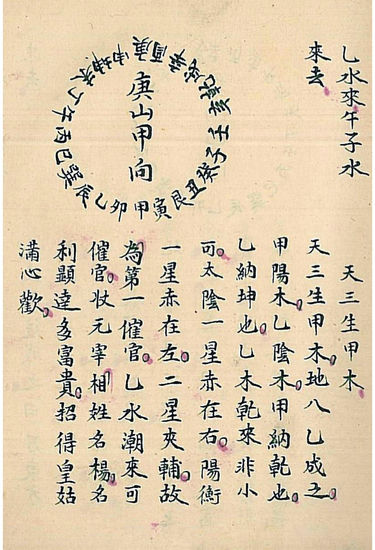 乙水來午子水
來去
壬子癸丑艮寅甲卯乙辰巽巳丙午丁未坤申庚酉辛戌乾亥
庚山甲向
天三生甲木
天三生甲木。地八乙成之。
甲陽木。乙陰木。甲納乾也。
乙納坤也。乙木乾來非小
可。太陰一星赤在右。陽衡
一星赤在左。二星夾輔。故
為第一催官。乙水潮來可
催官。狀元宰相姓名楊。名
利顯達多富貴。招得皇姑
滿心歡。